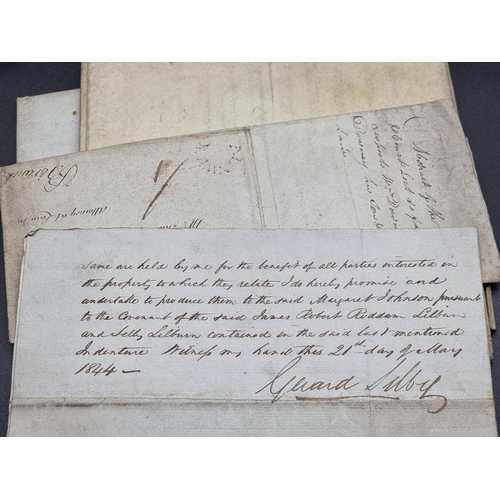 same are held by me for the benefit of all parties interested in
the property to which they relate I do hereby promise and
undertake to produce them to the said Margaret Johnson pursuant
to the Covenant of the said James Robert Roddam Lilburn
and Selby Lilburn contained in the said last mentioned
Indenture Witness my hand this 21st day of May
1844 —
Gerard Selby
Abstract of the
Berwick
Attorney at Law